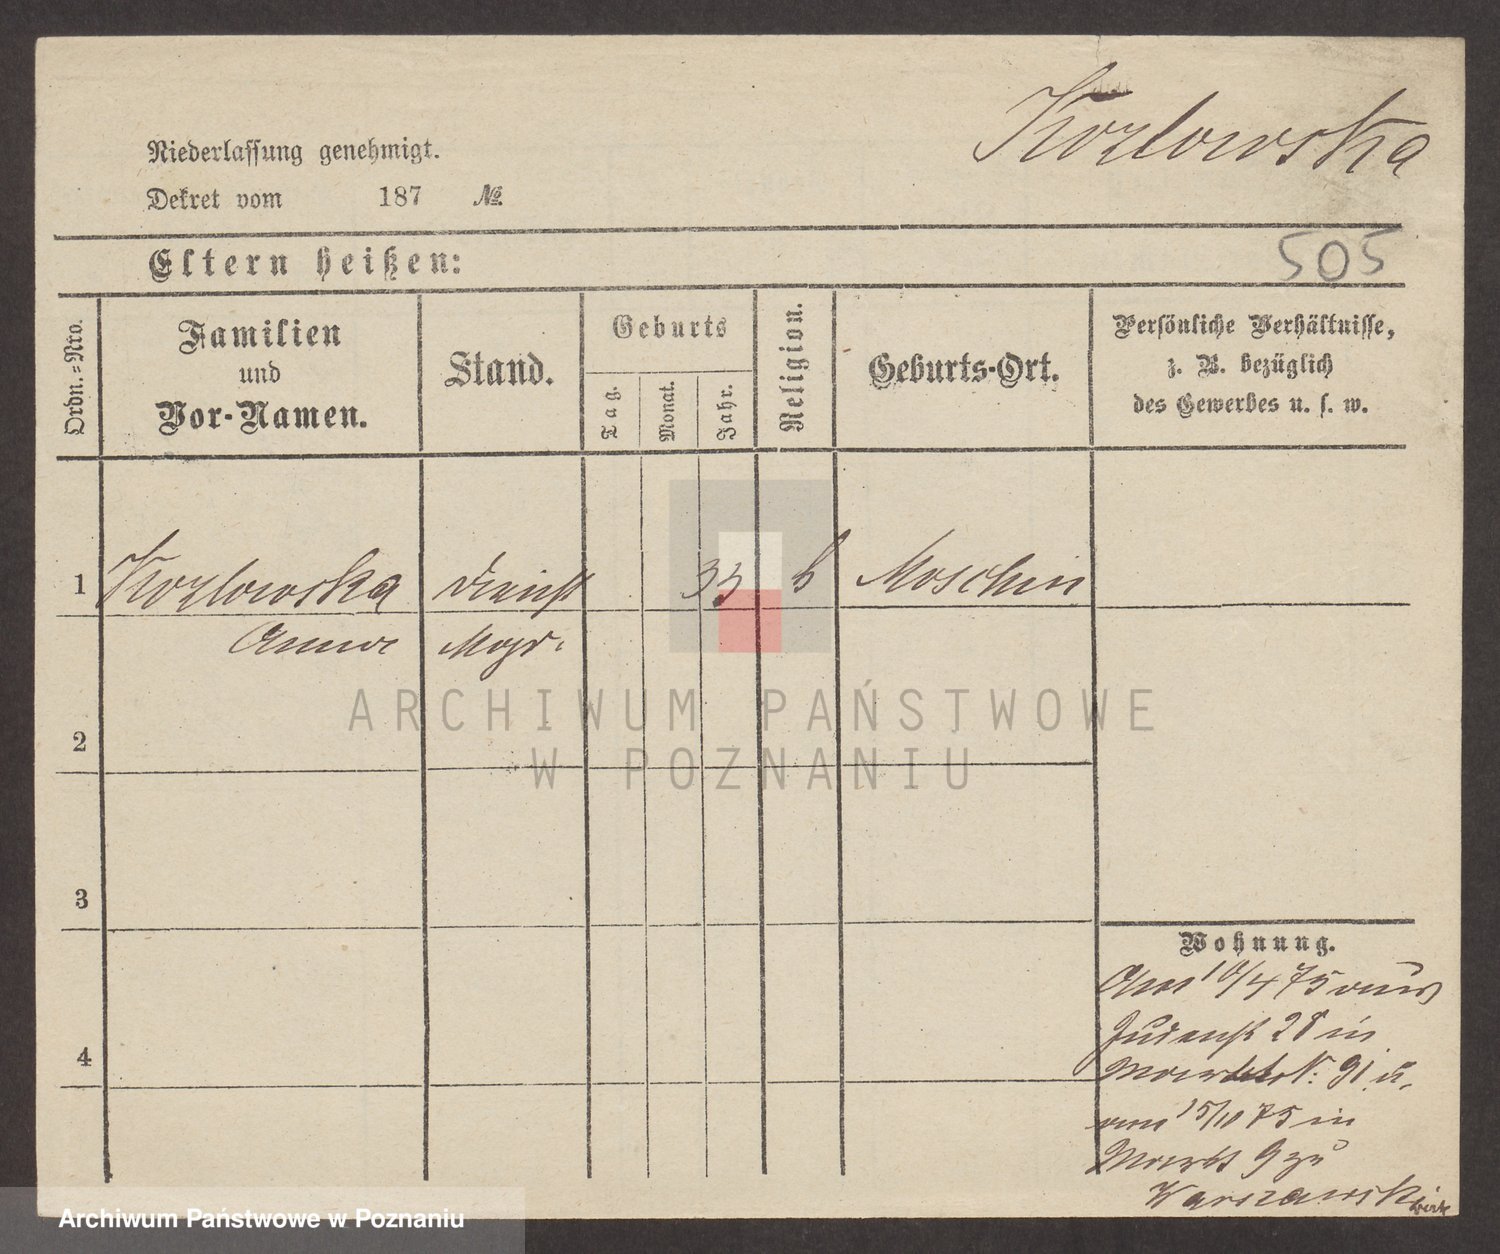 Kozlowska
Niederlassung genehmigt.
Dekret vom 187 №.
505
Eltern heißen:
Ordn.=Nro.
Familien
und
Vor-Namen.
Stand.
Geburts
Tag.
Monat.
Jahr.
Religion.
Geburts-Ort.
Persönliche Verhältnisse,
z. B. bezüglich
des Gewerbes u. s. w.
1 Kozlowska Dienst 33 k Moschin
Anna Magd.
2
3
4
Wohnung.
Am 10/4 75 aus
Judenst 28 in
Markt N: 91 u.
am 15/11 75 in
Markt 9 zu
Warszawski
ARCHIWUM PAŃSTWOWE
W POZNANIU
Archiwum Państwowe w Poznaniu